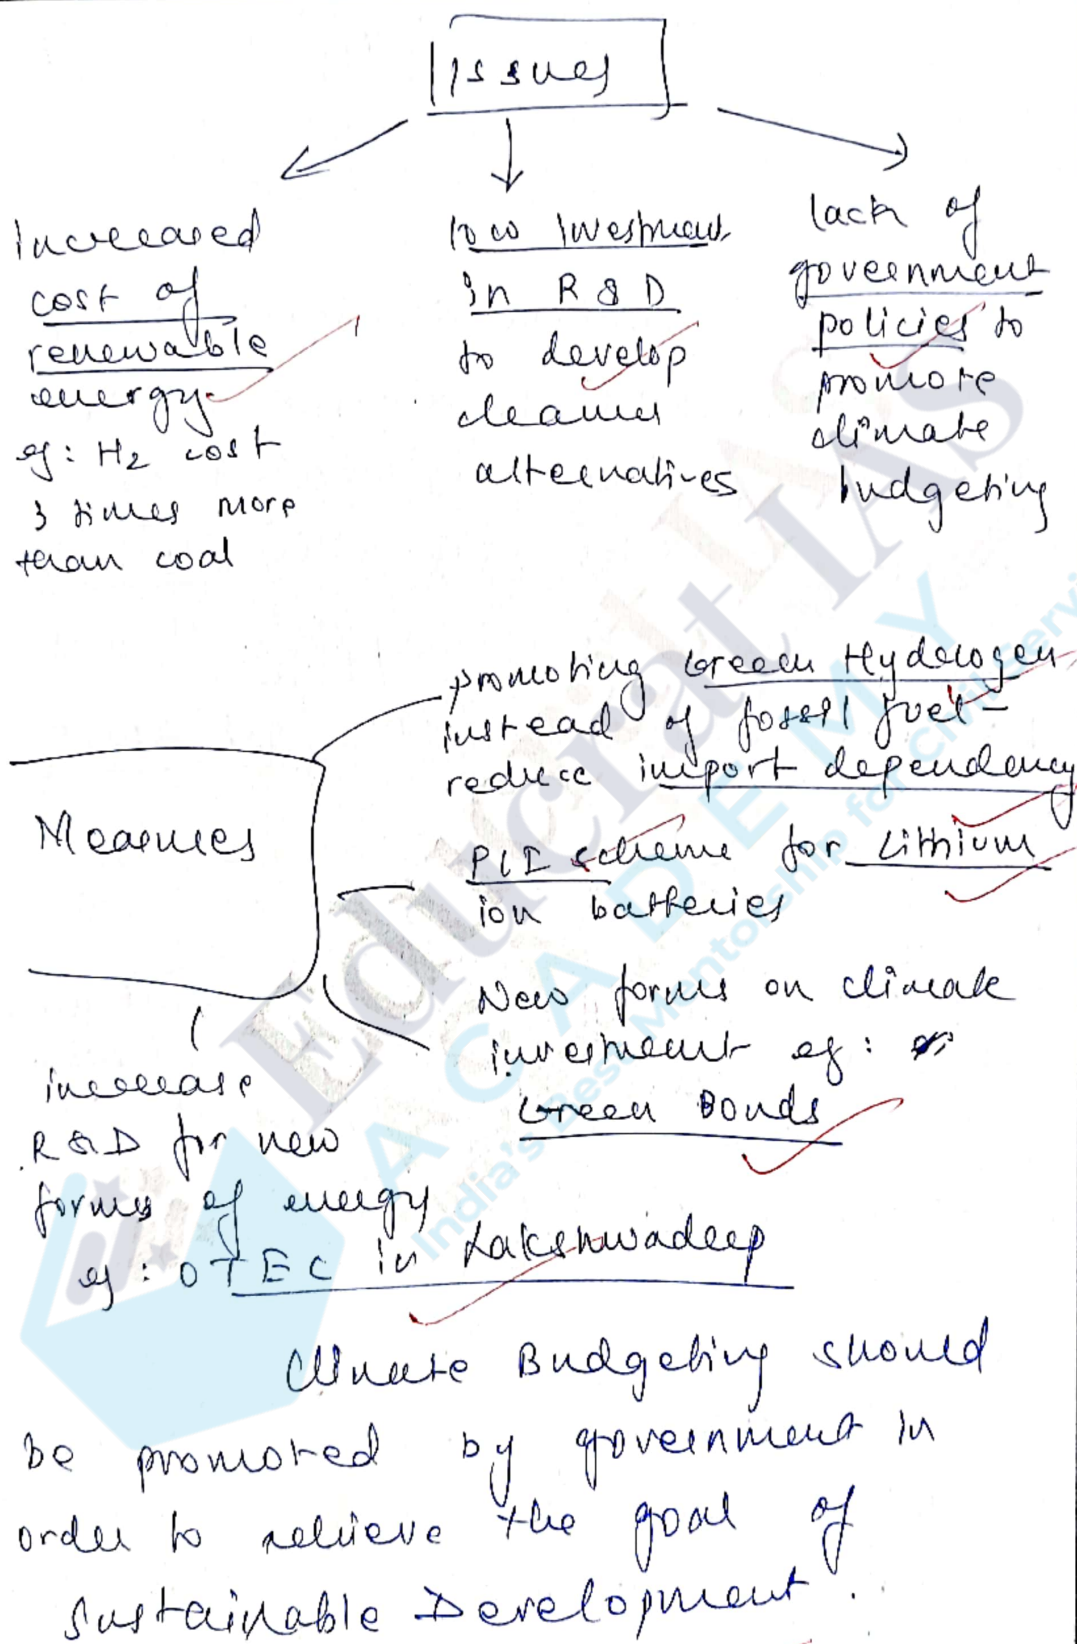 Issues
Increased
cost of
renewable
energy.
eg: H2 cost
3 times more
than coal
low Investment
in R&D
to develop
cleaner
alternatives
lack of
government
policies to
promote
climate
budgeting
Measures
promoting Green Hydrogen
instead of fossil fuel -
reduce import dependency
PLI scheme for Lithium
ion batteries
New forms on climate
investment eg:
Green Bonds
increase
R&D for new
forms of energy
eg: OTEC in Lakshwadeep
Climate Budgeting should
be promoted by government in
order to achieve the goal of
Sustainable Development.
Educrat IAS
ACADEMY
India's Best Mentorship for Civil Servi